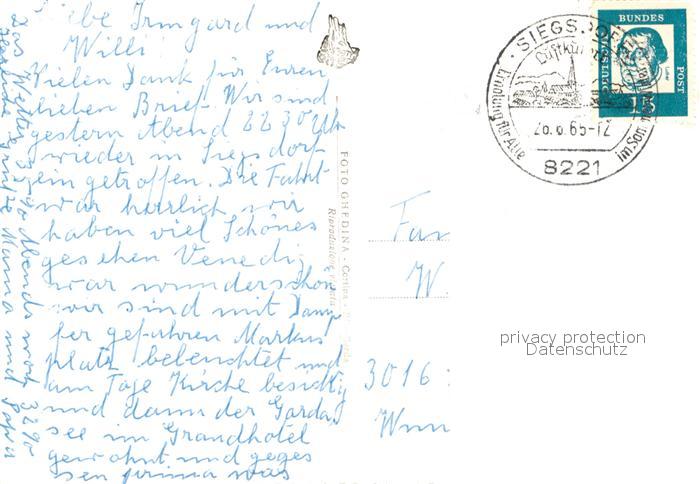 Liebe Irmgard und
Willi!
Vielen Dank für Euren
lieben Brief. Wir sind
gestern Abend 22 30 Uhr
wieder in Siegsdorf
ein getroffen. Die Fahrt
war herrlich wir
haben viel Schönes
gesehen Venedig
war wunderschön
wir sind mit Damp
fer gefahren Markus
platz beleuchtet und
am Tage Kirche besichtig
und dann der Garda
see im Grandhotel
gewohnt und geges
sen prima was
Das Wetter 35 40 Abends noch 32 90
Herzliche Grüße Mama und Papa
FOTO GHEDINA - Cortina
Riproduzione vietata
SIEGSDORF
Luftkurort
Erholung für Alle
im Sommer
26.6.65-12
8221
DEUTSCHE BUNDESPOST
15
Fam
W.
3016
Wun
privacy protection
Datenschutz